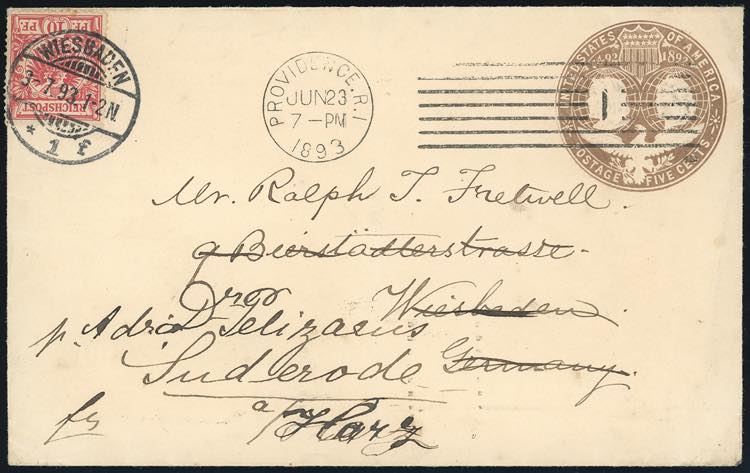 10 PF 10 PF
REICHSPOST
WIESBADEN
3-7.93.1-2N
* 1 f
PROVIDENCE.R.I
JUN23
7-PM
1893
UNITED STATES OF AMERICA
1492 1892
POSTAGE FIVE CENTS
Mr. Ralph T. Fretwell.
9 Bierstädterstrasse-
Wiesbaden
p. Adr.
Suderode Germany.
a/Harz